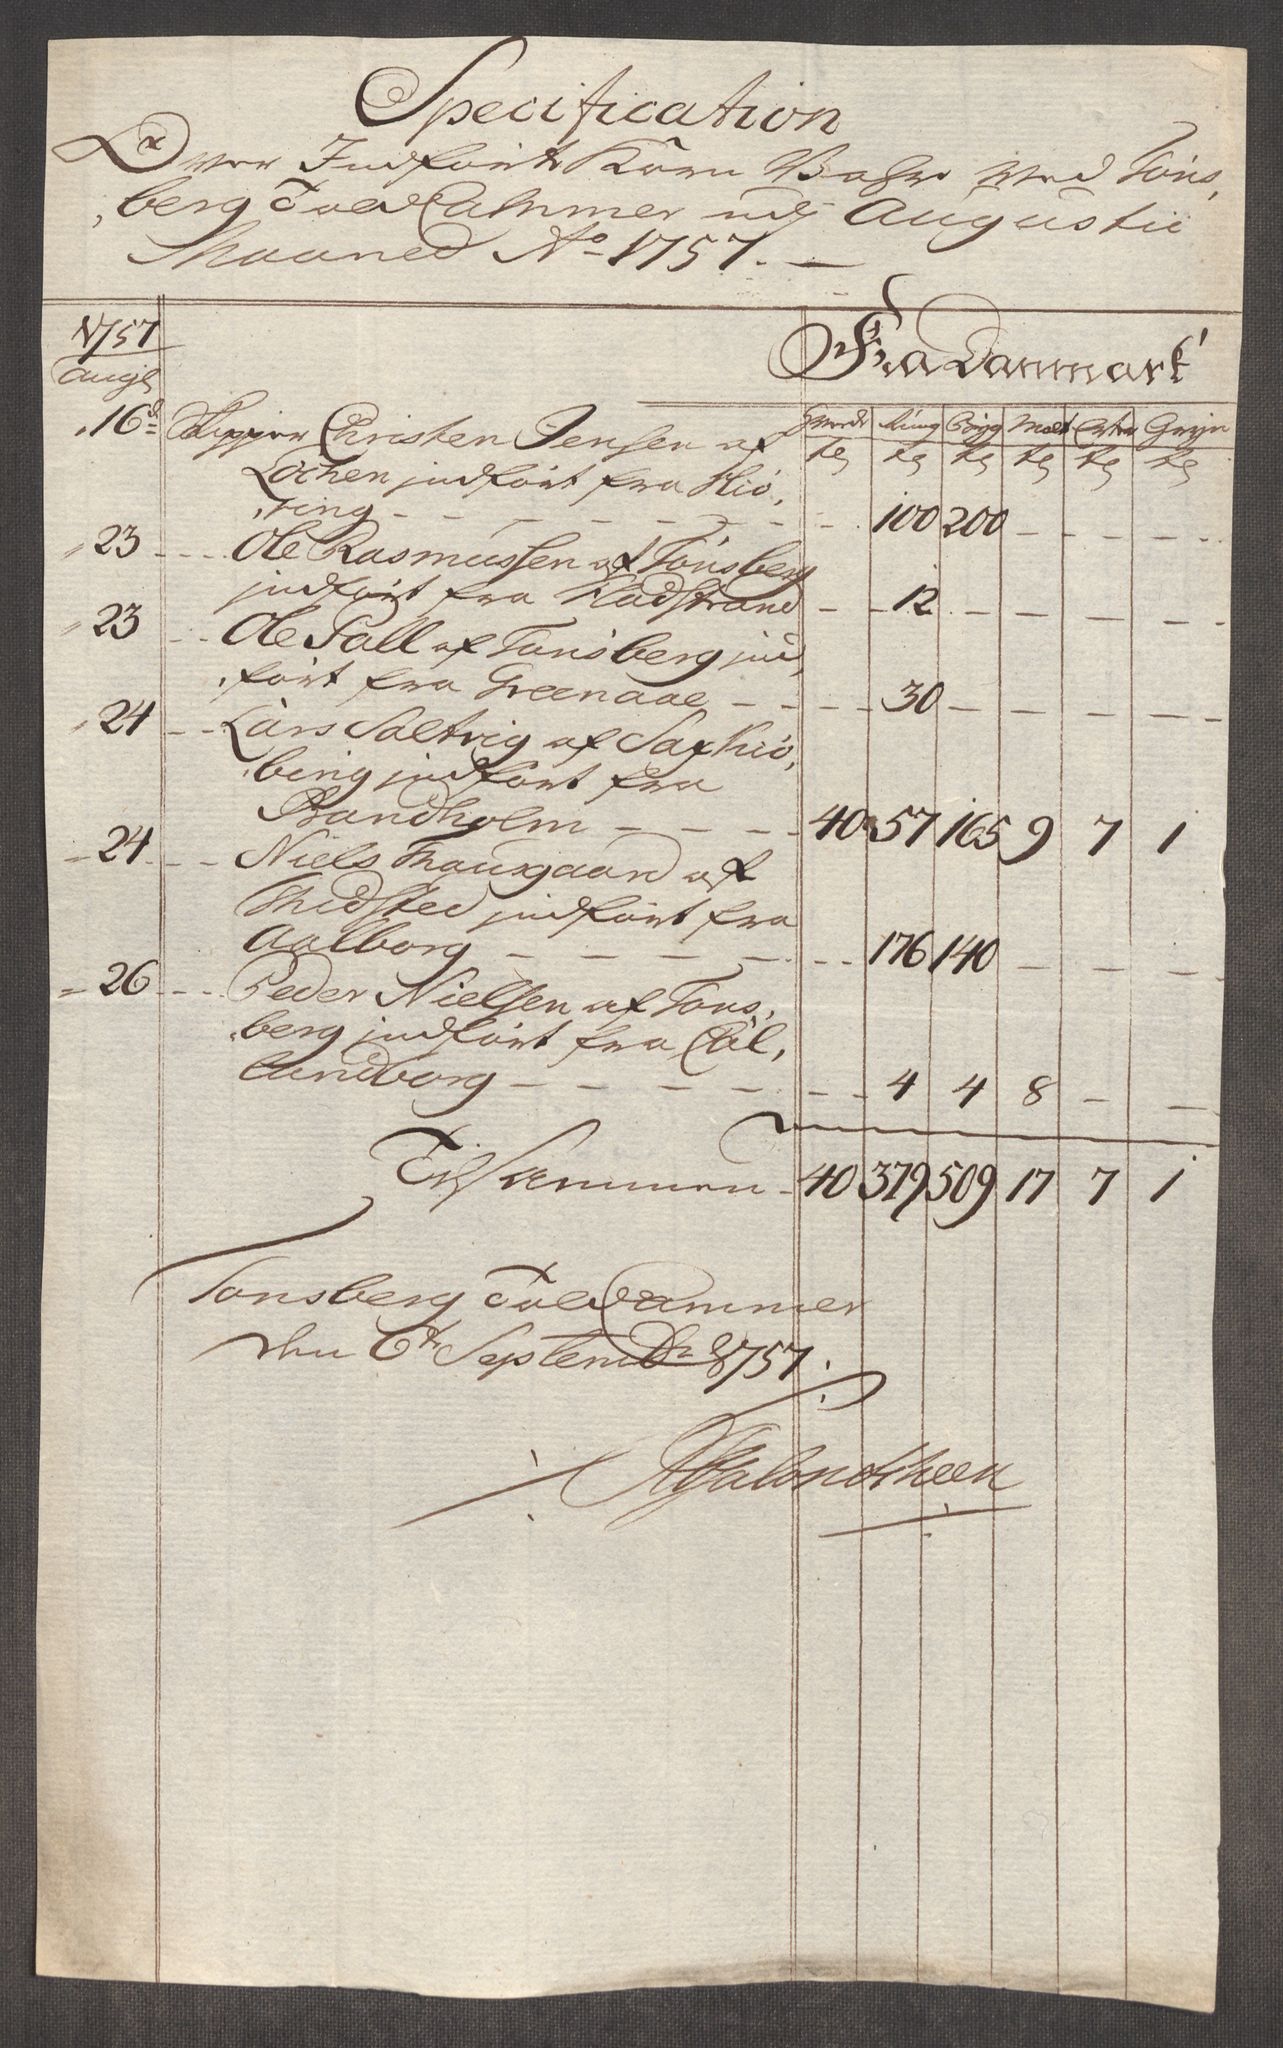 Specification
Over Indførte Korn Vahre ved Töns,
berg Told Cammer udj Augustii
Maaned Ao 1757.
1757
Fra Danmark
Augs
Hvede Rug Bÿgg Malt Erter Grÿn
tr tr tr tr tr tr
16de Skipper Christen Jensen af
Löchen indført fra Hiö,
ring - - - - 100 200 - - - -
23 - - Ole Rasmussen af Tönsberg
indført fra Fladstrand - - 12 - - - -
23 - - Ole Pall af Tönsberg ind,
ført fra Greenaae - - - 30 - - - -
24 - - Lars Saltvig af Saxkiö,
bing indført fra
Bandholm - - - - 40 57 165 9 7 1
24 - - Niels Thausgaard af
Thisted indført fra
Aalborg - - - - 176 140 - - - -
26 - - Peder Nielsen af Töns,
berg indført fra Cal,
lundborg - - - - 4 4 8 - -
Tilsammen - 40 379 509 17 7 1
Tønsberg Told Cammer
den 6te Septembr 1757.